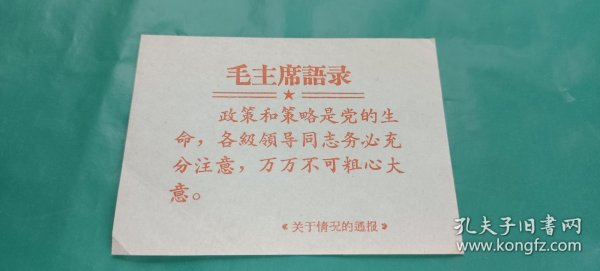 毛主席語录
政策和策略是党的生
命，各級領导同志务必充
分注意，万万不可粗心大
意。
《关于情况的通报》
孔夫子旧书网
www.kongfz.com